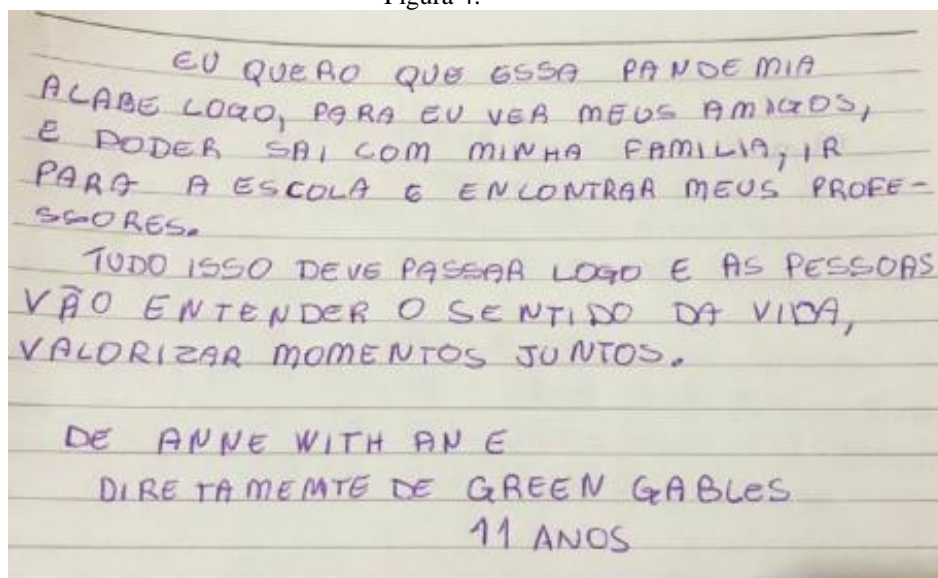 Figura 4.
EU QUERO QUE ESSA PANDEMIA
ACABE LOGO, PARA EU VER MEUS AMIGOS,
E PODER SAI COM MINHA FAMILIA, IR
PARA A ESCOLA E ENCONTRAR MEUS PROFE-
SSORES.
TUDO ISSO DEVE PASSAR LOGO E AS PESSOAS
VÃO ENTENDER O SENTIDO DA VIDA,
VALORIZAR MOMENTOS JUNTOS.
DE ANNE WITH AN E
DIRETAMEMTE DE GREEN GABLES
11 ANOS